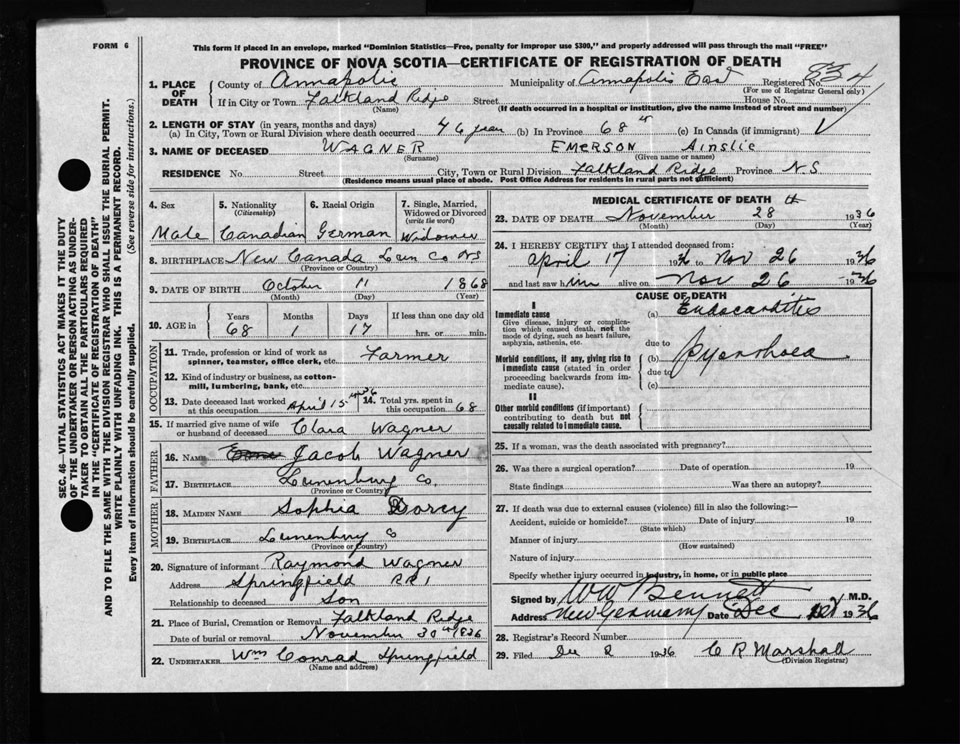 FORM 6
This form if placed in an envelope, marked "Dominion Statistics—Free, penalty for improper use $300," and properly addressed will pass through the mail "FREE"
PROVINCE OF NOVA SCOTIA—CERTIFICATE OF REGISTRATION OF DEATH
1. PLACE OF DEATH County of Annapolis Municipality of Annapolis East Registered No. 834
(For use of Registrar General only)
If in City or Town Falkland Ridge Street House No.
(Name) (If death occurred in a hospital or institution, give the name instead of street and number)
2. LENGTH OF STAY (in years, months and days)
(a) In City, Town or Rural Division where death occurred 46 years (b) In Province 68 yr (c) In Canada (if immigrant)
3. NAME OF DECEASED WAGNER EMERSON Ainslie
(Surname) (Given name or names)
RESIDENCE No. Street City, Town or Rural Division Falkland Ridge Province N.S
(Residence means usual place of abode. Post Office Address for residents in rural parts not sufficient)
4. Sex 5. Nationality (Citizenship) 6. Racial Origin 7. Single, Married, Widowed or Divorced (write the word)
Male Canadian German Widower
8. BIRTHPLACE New Canada Lun Co NS
(Province or Country)
9. DATE OF BIRTH October 11 1868
(Month) (Day) (Year)
10. AGE in Years Months Days If less than one day old
68 1 17 hrs. or min.
OCCUPATION
11. Trade, profession or kind of work as spinner, teamster, office clerk, etc. Farmer
12. Kind of industry or business, as cotton-mill, lumbering, bank, etc.
13. Date deceased last worked at this occupation April 15th 36 14. Total yrs. spent in this occupation 68
15. If married give name of wife or husband of deceased Clara Wagner
FATHER
16. NAME Jacob Wagner
17. BIRTHPLACE Lunenburg Co.
(Province or Country)
MOTHER
18. MAIDEN NAME Sophia Dorey
19. BIRTHPLACE Lunenburg Co
(Province or Country)
20. Signature of informant Raymond Wagner
Address Springfield RR1
Relationship to deceased Son
21. Place of Burial, Cremation or Removal Falkland Ridge
Date of burial or removal November 30th 1936
22. UNDERTAKER Wm Conrad Springfield
(Name and address)
MEDICAL CERTIFICATE OF DEATH
23. DATE OF DEATH November 28th 1936
(Month) (Day) (Year)
24. I HEREBY CERTIFY that I attended deceased from:
April 17 1936 to Nov 26 1936
and last saw him alive on Nov 26 1936
CAUSE OF DEATH
I
Immediate cause
Give disease, injury or complication which caused death, not the mode of dying, such as heart failure, asphyxia, asthenia, etc.
(a) Endocarditis
due to
Morbid conditions, if any, giving rise to immediate cause (stated in order proceeding backwards from immediate cause).
(b) Pyorrhoea
due to
(c)
II
Other morbid conditions (if important) contributing to death but not causally related to immediate cause.
25. If a woman, was the death associated with pregnancy?
26. Was there a surgical operation? Date of operation 19
State findings Was there an autopsy?
27. If death was due to external causes (violence) fill in also the following:—
Accident, suicide or homicide? Date of injury 19
(State which)
Manner of injury
(How sustained)
Nature of injury
Specify whether injury occurred in industry, in home, or in public place
Signed by WW Bennett M.D.
Address New Germany Date Dec 1936
28. Registrar's Record Number
29. Filed Dec 2 1936 C R Marshall
(Division Registrar)
SEC. 46—VITAL STATISTICS ACT MAKES IT THE DUTY
OF THE UNDERTAKER OR PERSON ACTING AS UNDER-
TAKER TO OBTAIN ALL THE PARTICULARS REQUIRED
IN THE "CERTIFICATE OF REGISTRATION OF DEATH"
AND TO FILE THE SAME WITH THE DIVISION REGISTRAR WHO SHALL ISSUE THE BURIAL PERMIT.
WRITE PLAINLY WITH UNFADING INK. THIS IS A PERMANENT RECORD.
Every item of information should be carefully supplied. (See reverse side for instructions.)